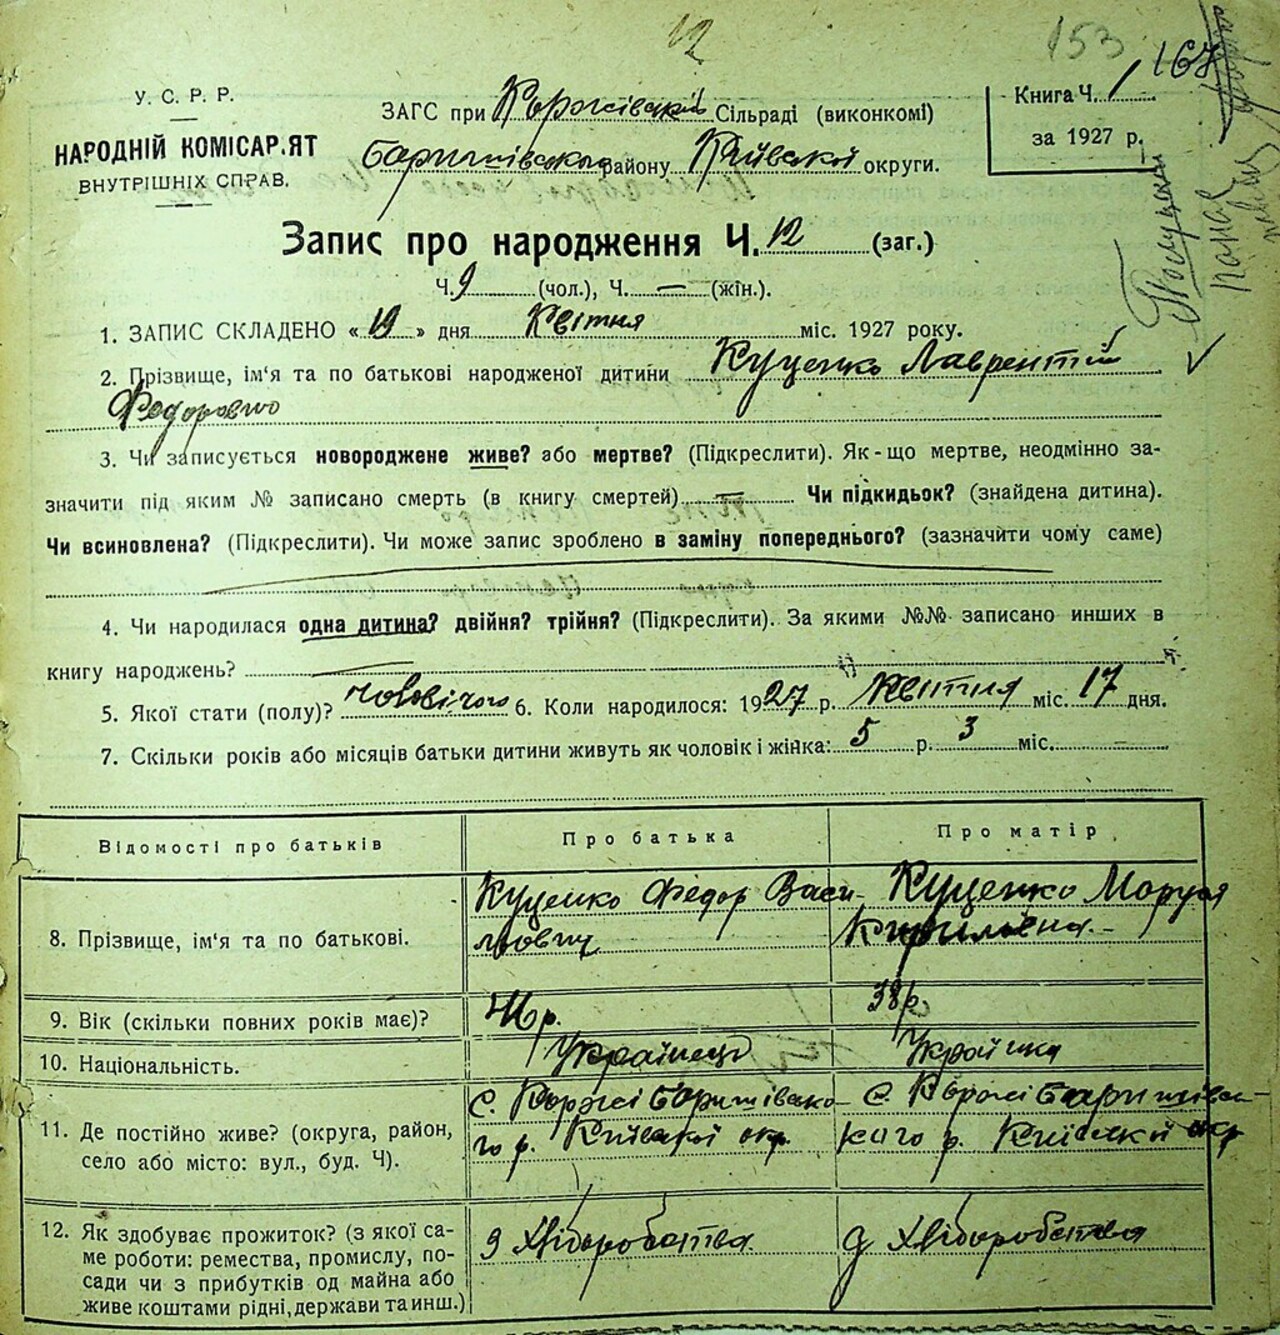 12
153
167
У. С. Р. Р.
НАРОДНІЙ КОМІСАР.ЯТ
ВНУТРІШНІХ СПРАВ.
ЗАГС при Коржівській Сільраді (виконкомі)
Баришівського району Київської округи.
Книга Ч. 1
за 1927 р.
Запис про народження Ч. 12 (заг.)
Ч. 9 (чол.), Ч. — (жін.).
1. ЗАПИС СКЛАДЕНО « 19 » дня Квітня міс. 1927 року.
2. Прізвище, ім'я та по батькові народженої дитини Куценко Лаврентій
Федорович
3. Чи записується новороджене живе? або мертве? (Підкреслити). Як-що мертве, неодмінно за-
значити під яким № записано смерть (в книгу смертей) — Чи підкидьок? (знайдена дитина).
Чи всиновлена? (Підкреслити). Чи може запис зроблено в заміну попереднього? (зазначити чому саме)
4. Чи народилася одна дитина? двійня? трійня? (Підкреслити). За якими №№ записано инших в
книгу народжень?
5. Якої стати (полу)? чоловічого 6. Коли народилося: 1927 р. Квітня міс. 17 дня.
7. Скільки років або місяців батьки дитини живуть як чоловік і жінка: 5 р. 3 міс. —
Відомості про батьків Про батька Про матір
8. Прізвище, ім'я та по батькові. Куценко Федор Васи- Куценко Маруся
льович Кирилівна
9. Вік (скільки повних років має)? 38 р.
10. Національність. Українець Українка
11. Де постійно живе? (округа, район, с. Коржі Баришівсько- с. Коржі Баришівсь-
село або місто: вул., буд. Ч). го р. Київської окр. кого р. Київської окр
12. Як здобуває прожиток? (з якої са- з Хліборобства з Хліборобства
ме роботи: ремества, промислу, по-
сади чи з прибутків од майна або
живе коштами рідні, держави та инш.)